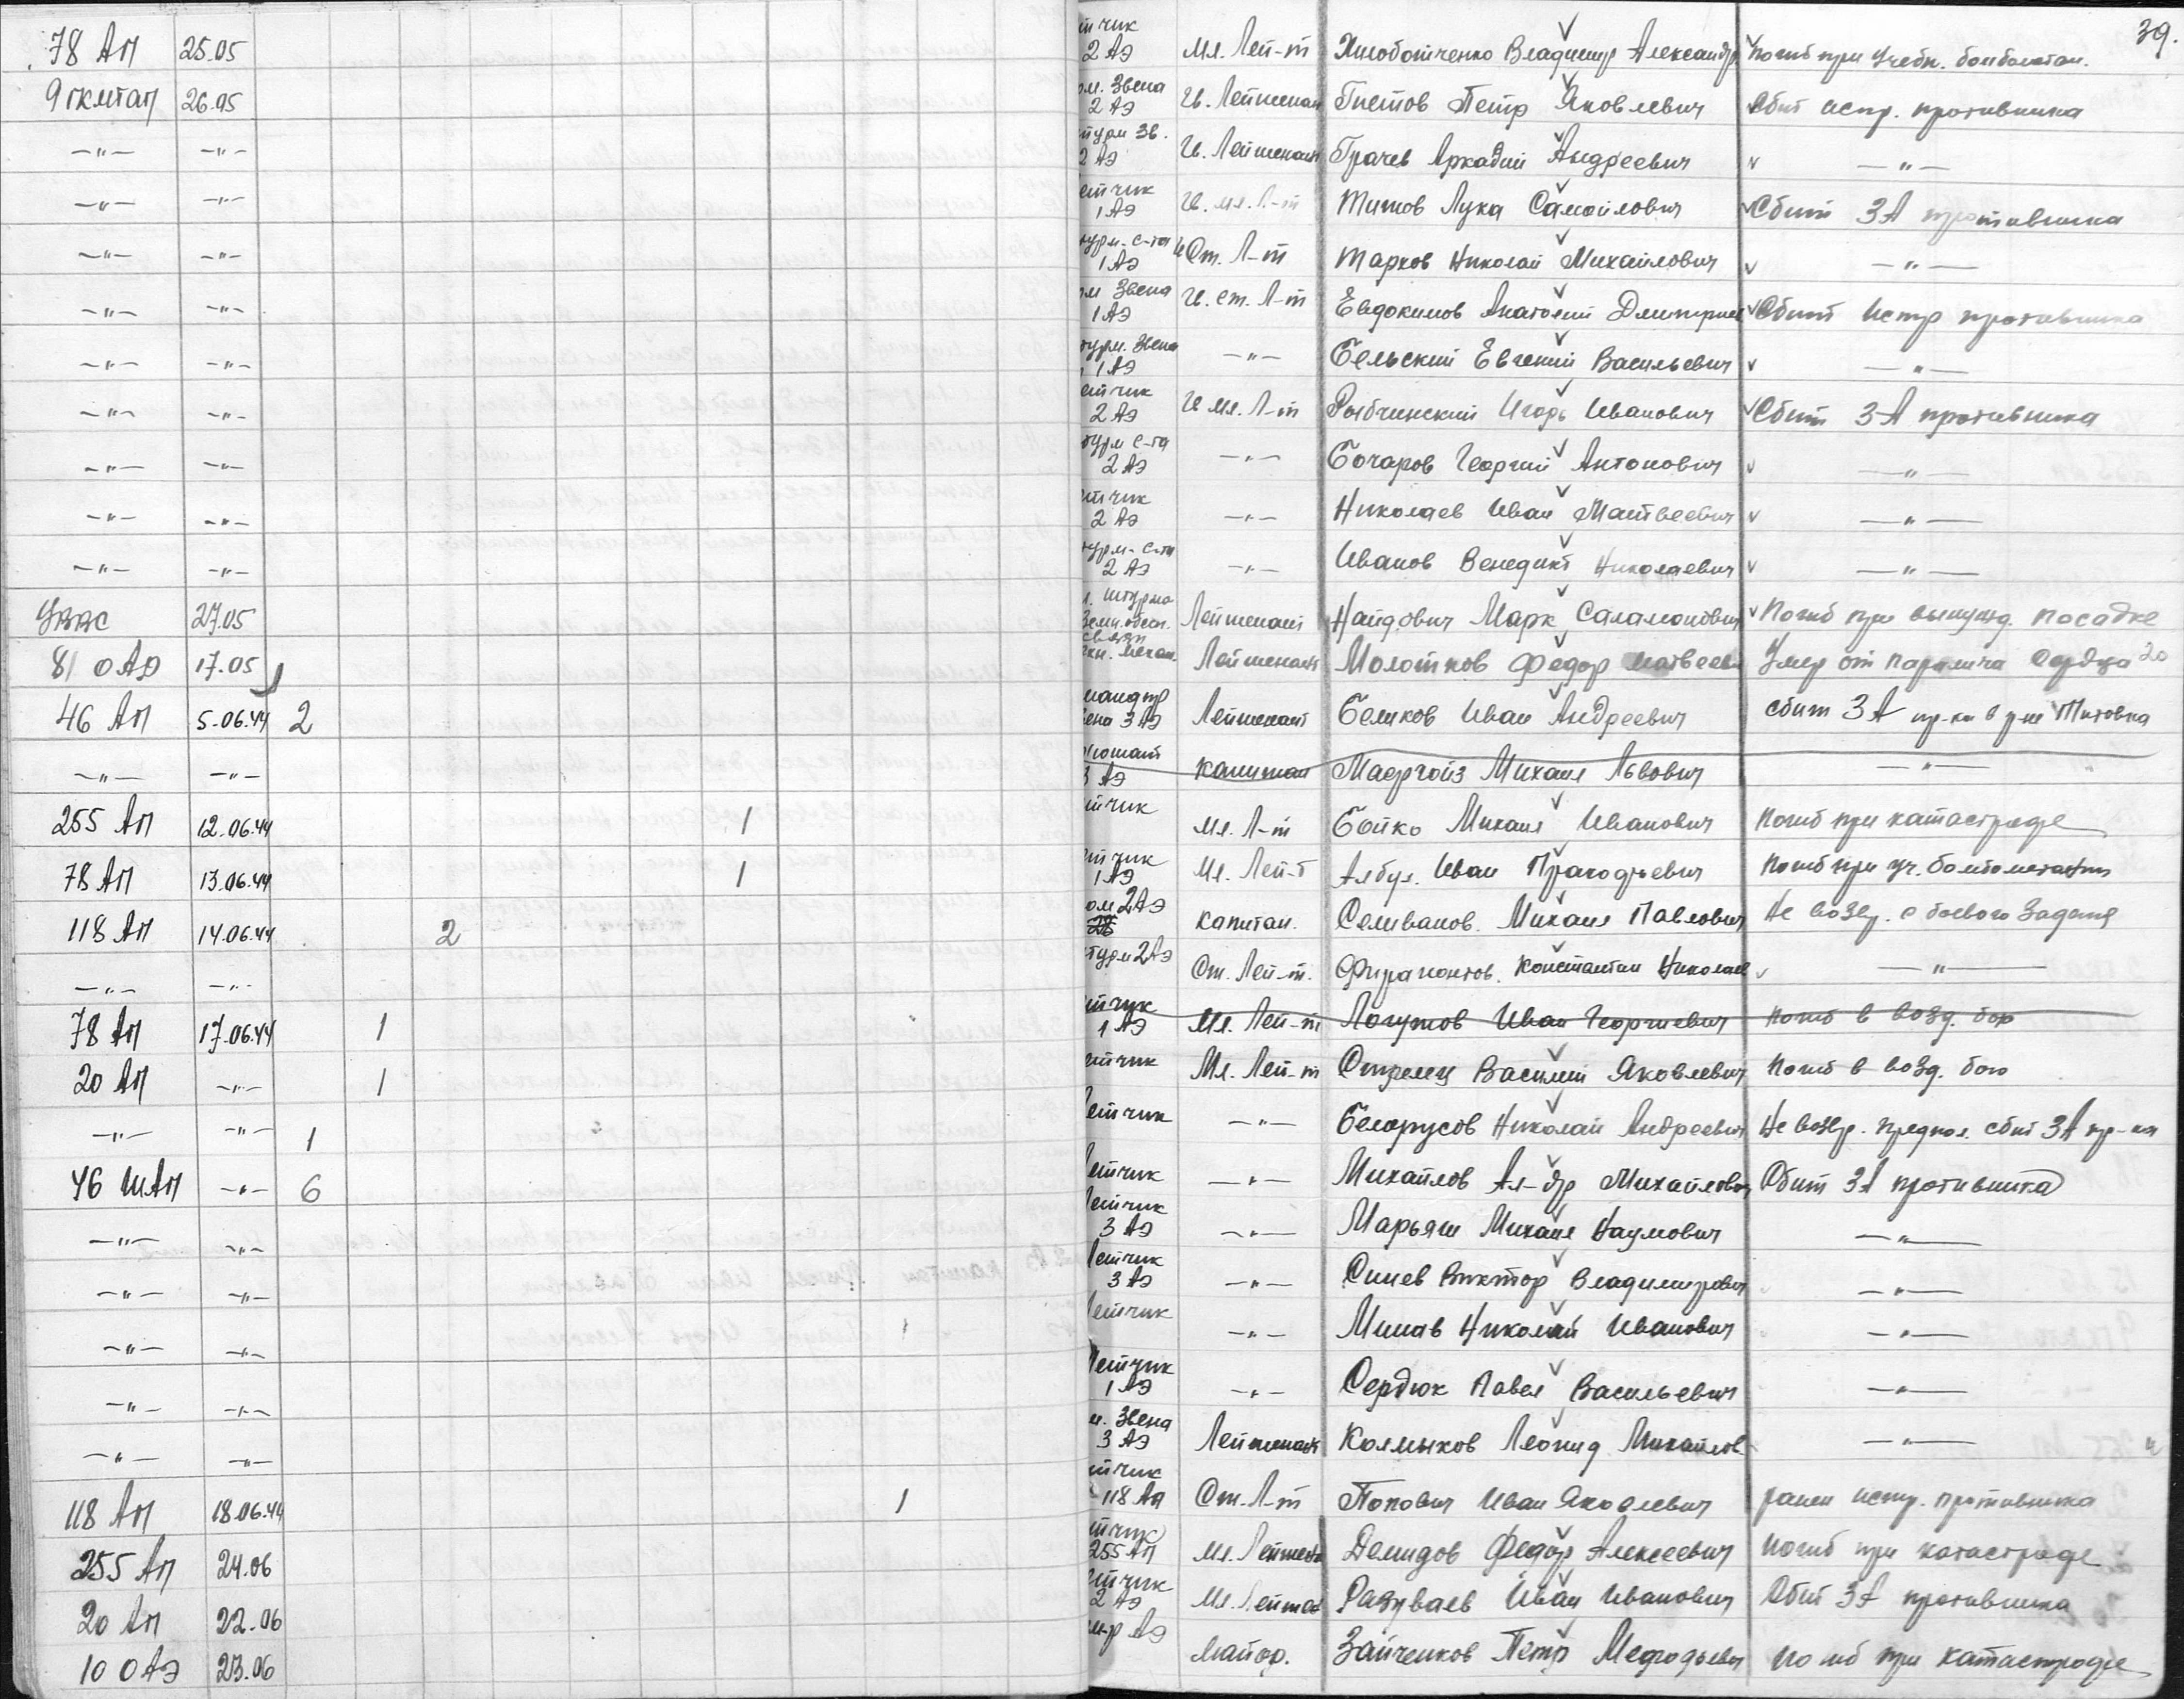 39.
78 АП 25.05 тчик 2 АЭ Мл. Лей-т Владимир Александр Погиб при учебн.
9 гкмтап 26.05 м. Звена 2 АЭ Гв. Лейтенант Гнетов Петр Яковлевич Сбит истр. противника
-"- -"- турм Зв. 2 АЭ Гв. Лейтенант Грачев Аркадий Андреевич -"-
-"- -"- етчик 1 АЭ Гв. мл. Л-т Титов Лука Самойлович Сбит ЗА противника
-"- -"- турм. с-та 1 АЭ Ст. Л-т Тарков Николай Михайлович -"-
-"- -"- м Звена 1 АЭ Гв. ст. Л-т Евдокимов Анатолий Дмитриев Сбит Истр противника
-"- -"- турм. Звена 1 АЭ -"- Бельский Евгений Васильевич -"-
-"- -"- етчик 2 АЭ Гв мл. Л-т Рыбчинский Игорь Иванович Сбит ЗА противника
-"- -"- турм с-та 2 АЭ -"- Бочаров Георгий Антонович -"-
-"- -"- тчик 2 АЭ -"- Николаев Иван Матвеевич -"-
-"- -"- турм. с-та 2 АЭ -"- Иванов Венедикт Николаевич -"-
УВВС 27.05 . штурма Земн. обесп. связи Лейтенант Найдович Марк Саламонович Погиб при вынужд. посадке
81 ОАЭ 17.05 1 . механ. Лейтенант Молотков Федор Матвеев Умер от паралича сердца 20
46 АП 5.06.44 2 мандир ена 3 АЭ Лейтенант Беликов Иван Андреевич сбит ЗА пр-ка в р-не Титовка
-"- -"- ютант 3 АЭ капитан Маергойз Михаил Львович -"-
255 АП 12.06.44 1 тчик Мл. Л-т Бойко Михаил Иванович Погиб при катастрофе
78 АП 13.06.44 1 тчик 1 АЭ Мл. Лей-т Албул. Иван Прокофьевич Погиб при уч. бомбометании
118 АП 14.06.44 2 ом 2 АЭ капитан. Селиванов. Михаил Павлович Не возвр. с боевого Задания
-"- -"- турм 2 АЭ Ст. Лей-т. Ферапонтов. Константин Николаев -"-
78 АП 17.06.44 1 тчик 1 АЭ Мл. Лей-т Логутов Иван Георгиевич Погиб в возд. бою
20 АП -"- 1 тчик Мл. Лей-т Стрелец Василий Яковлевич Погиб в возд. бою
-"- -"- 1 Летчик -"- Белорусов Николай Андреевич Не возвр. предпол. сбит ЗА пр-ка
46 ШАП -"- 6 Летчик -"- Михайлов Ал-др Михайлович Сбит ЗА противника
-"- -"- Летчик 3 АЭ -"- Марьяш Михаил Наумович -"-
-"- -"- Летчик 3 АЭ -"- Синев Виктор Владимирович -"-
-"- -"- Летчик -"- Минав Николай Иванович -"-
-"- -"- Летчик 1 АЭ -"- Сердюк Павел Васильевич -"-
-"- -"- м. Звена 3 АЭ Лейтенант Колмыков Леонид Михайлов -"-
118 АП 18.06.44 1 тчик 118 АП Ст. Л-т Попович Иван Яковлевич ранен истр. противника
255 АП 24.06 тчик 255 АП Мл. Лейтена Демидов Федор Алексеевич Погиб при катастрофе
20 АП 22.06 етчик 2 АЭ Мл. Лейтен Разуваев Иван Иванович Сбит ЗА противника
10 ОАЭ 23.06 м-р АЭ Майор. Зайченков Петр Мефодьевич Погиб при катастрофе